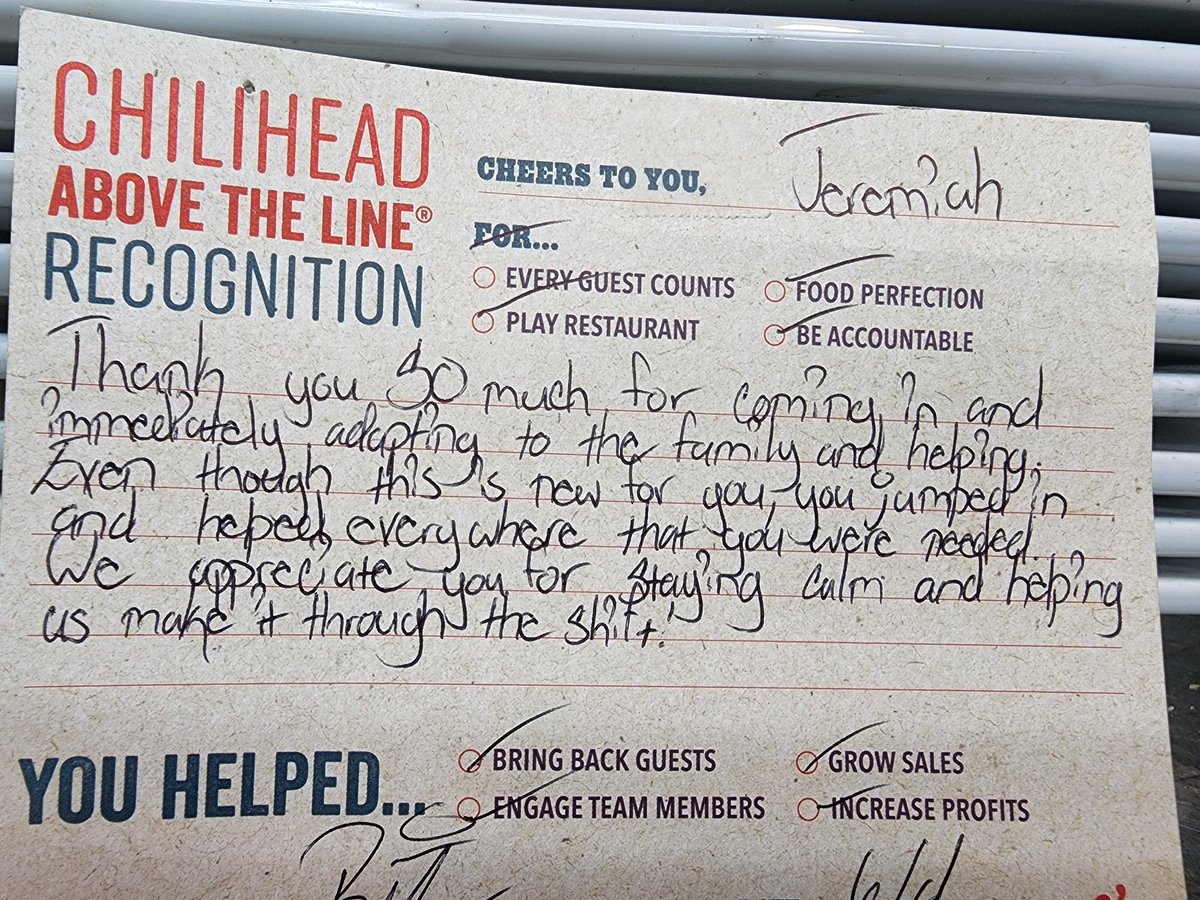 CHILIHEAD
ABOVE THE LINE®
RECOGNITION
CHEERS TO YOU, Jeremiah
FOR...
EVERY GUEST COUNTS
FOOD PERFECTION
PLAY RESTAURANT
BE ACCOUNTABLE
Thank you so much for coming in and
immediately adapting to the family and helping.
Even though this is new for you, you jumped in
and helped everywhere that you were needed.
We appreciate you for staying calm and helping
us make it through the shift.
YOU HELPED...
BRING BACK GUESTS
GROW SALES
ENGAGE TEAM MEMBERS
INCREASE PROFITS